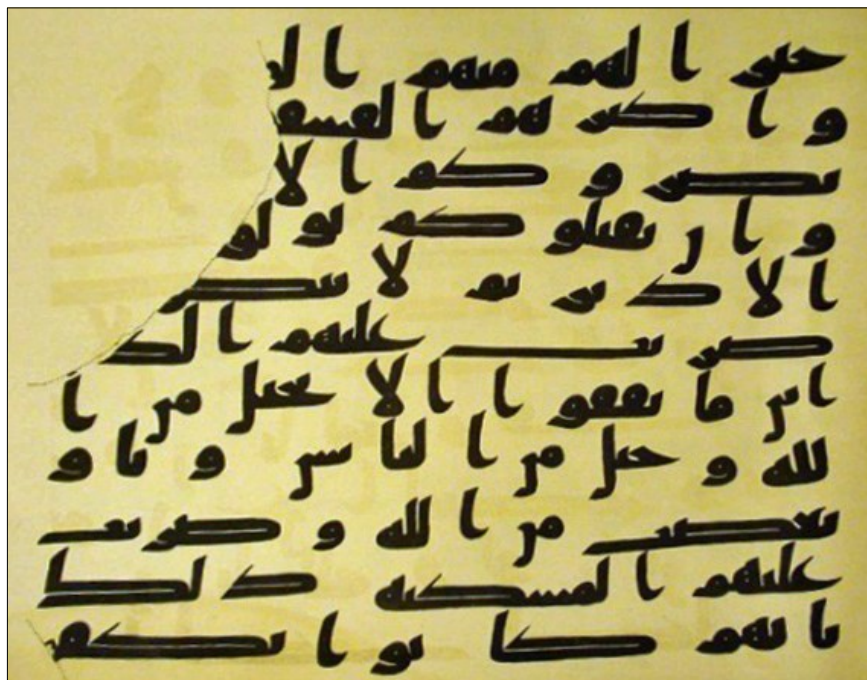 خيرا لهم منهم الم
واكثرهم الفسق
يضروكم الا
وان يقتلوكم يولو
الادبر ثم لا ينصر
ضربت عليهم الذ
اين ما ثقفوا الا بحبل من ا
لله وحبل من الناس وباو
بغضب من الله وضربت
عليهم المسكنه ذلك
بانهم كانوا يكف